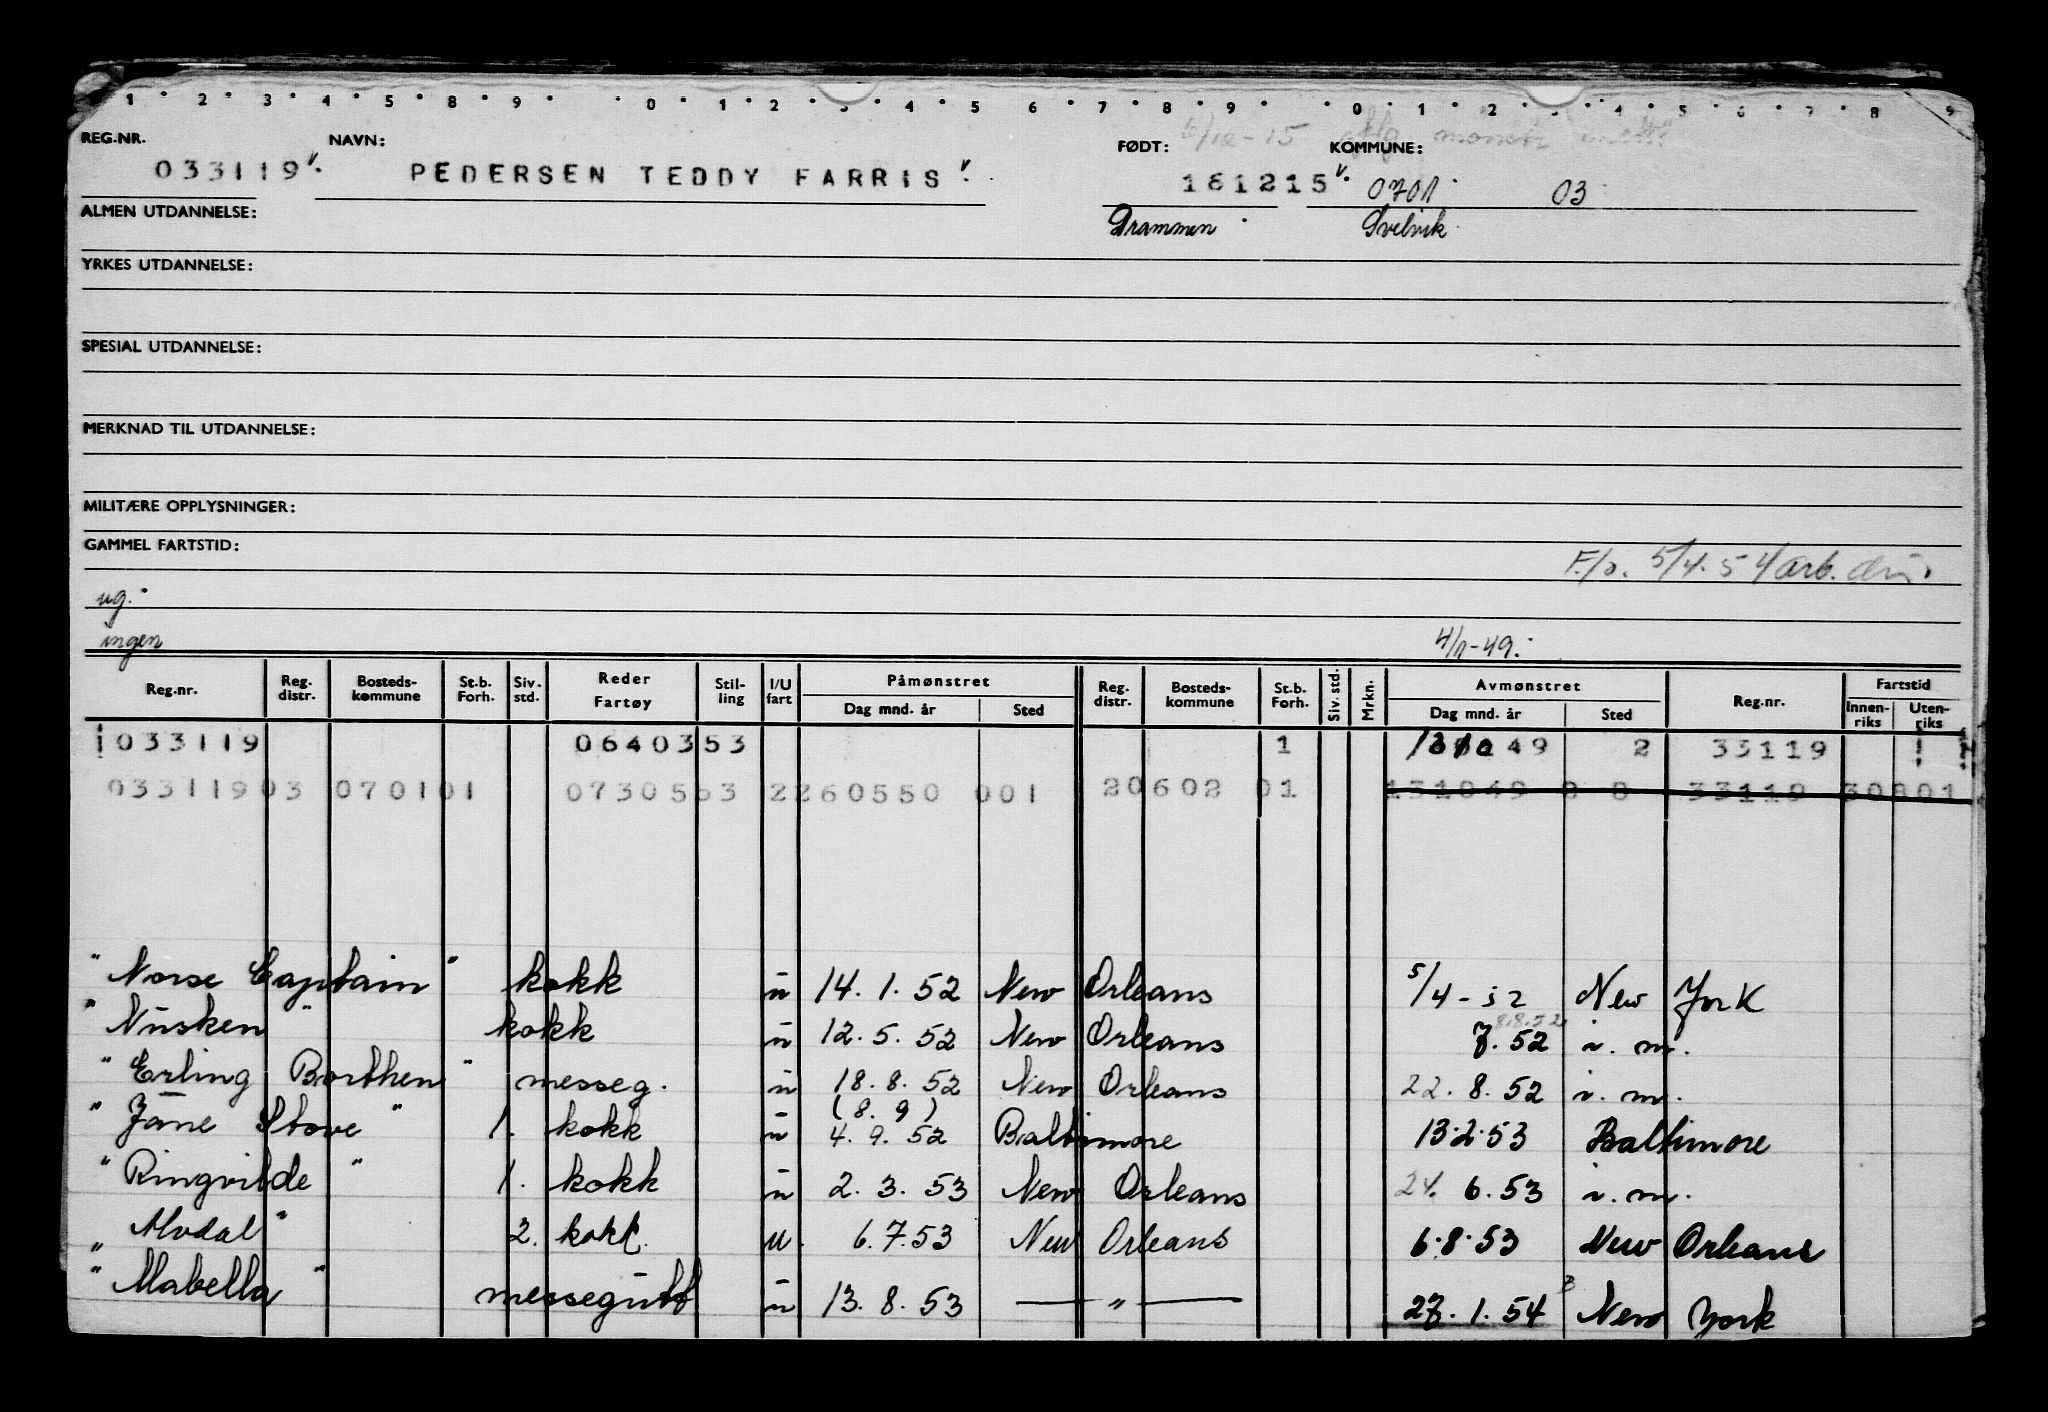 1 2 3 4 5 8 9 0 1 2 3 4 5 6 7 8 9 0 1 2 3 4 5 6 7 8 9
REG.NR. NAVN: FØDT: KOMMUNE:
033119 PEDERSEN TEDDY FARRIS 161215 0701 03
ALMEN UTDANNELSE: Drammen Svelvik
YRKES UTDANNELSE:
SPESIAL UTDANNELSE:
MERKNAD TIL UTDANNELSE:
MILITÆRE OPPLYSNINGER:
GAMMEL FARTSTID:
F./o. 5/4.54 arb.
ug.
ingen 4/1-49.
Reg.nr. Reg. distr. Bosteds-kommune St.b. Forh. Siv. std. Reder Fartøy Stil-ling I/U fart Påmønstret Dag mnd. år Sted Reg. distr. Bosteds-kommune St.b. Forh. Siv. std. Mrkn. Avmønstret Dag mnd. år Sted Reg.nr. Fartstid Innen-riks Uten-riks
033119 0640353 1 49 2 33119
03311903 070101 0730563 2260550 001 20602 01 131049 33119 30801
"Norse Captain" kokk u 14.1.52 New Orleans 5/4-52 New York
"Nusken" kokk u 12.5.52 New Orleans 8.8.52 7.52 i.m.
"Erling Borthen" messeg. u 18.8.52 New Orleans 22.8.52 i.m.
(8.9)
"Jane Stove" 1. kokk u 4.9.52 Baltimore 13.2.53 Baltimore
"Ringvilde" 1. kokk u 2.3.53 New Orleans 24.6.53 i.m.
"Alvdal" 2. kokk. u. 6.7.53 New Orleans 6.8.53 New Orleans
"Mabella" messegutt u 13.8.53 — " — 27.1.54 New York